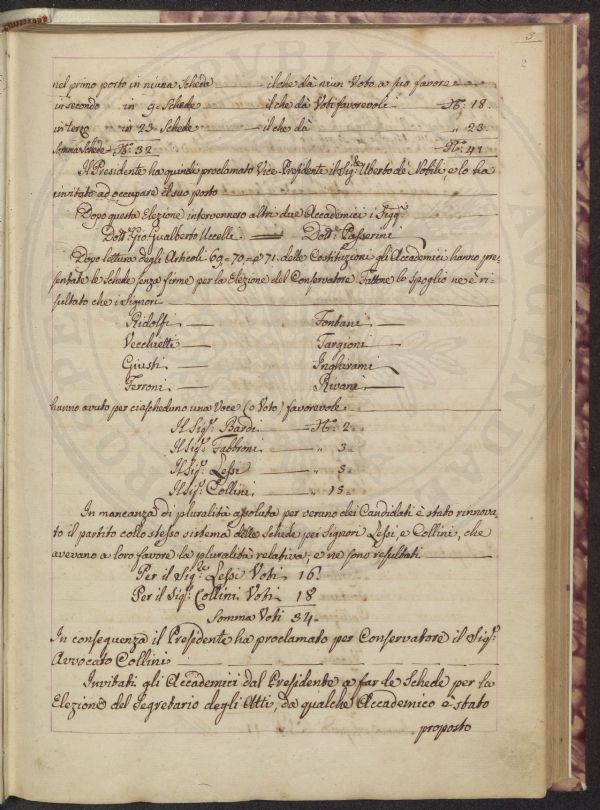 3
2
nel primo posto in niuna Scheda — il che dà niun Voto a suo favore
in secondo in 9. Schede — il che dà Voti favorevoli — N°. 18.
in terzo in 23. Schede — il che dà „ 23.
Somma Schede N°. 32 N°. 41.
Il Presidente ha quindi proclamato Vice-Presidente il Sigr. Uberto de' Nobili, e lo ha
invitato ad occupare il suo posto
Dopo questa Elezione intervennero altri due Accademici i Sigri.
Dottr. Gio. Gualberto Uccelli. — Dottr. Passerini
Dopo lettura degli Articoli 69 = 70 = e 71. delle Costituzioni gli Accademici hanno pre-
sentate le Schede senza firme per la Elezione del Conservatore. Fattone lo spoglio ne è ri-
sultato che i Signori
Ridolfi — Fontani —
Vecchietti — Targioni —
Giusti — Inghirami —
Ferroni — Rivani —
hanno avuto per ciascheduno una Voce (o Voto) favorevole
Il Sigr. Bardi — N°. 2.
Il Sigr. Fabbroni — „ 3.
Il Sigr. Lessi — „ 5.
Il Sigr. Collini — „ 15.
In mancanza di pluralità assoluta per veruno dei Candidati è stato rinnova-
to il partito collo stesso sistema delle Schede pei Signori Lessi, e Collini, che
avevano a loro favore la pluralità relativa; e ne sono resultati
Per il Sigr. Lessi Voti 16.
Per il Sigr. Collini Voti 18
Somma Voti 34.
In conseguenza il Presidente ha proclamato per Conservatore il Sigr.
Avvocato Collini
Invitati gli Accademici dal Presidente a far le Schede per la
Elezione del Segretario degli Atti, da qualche Accademico è stato
proposto